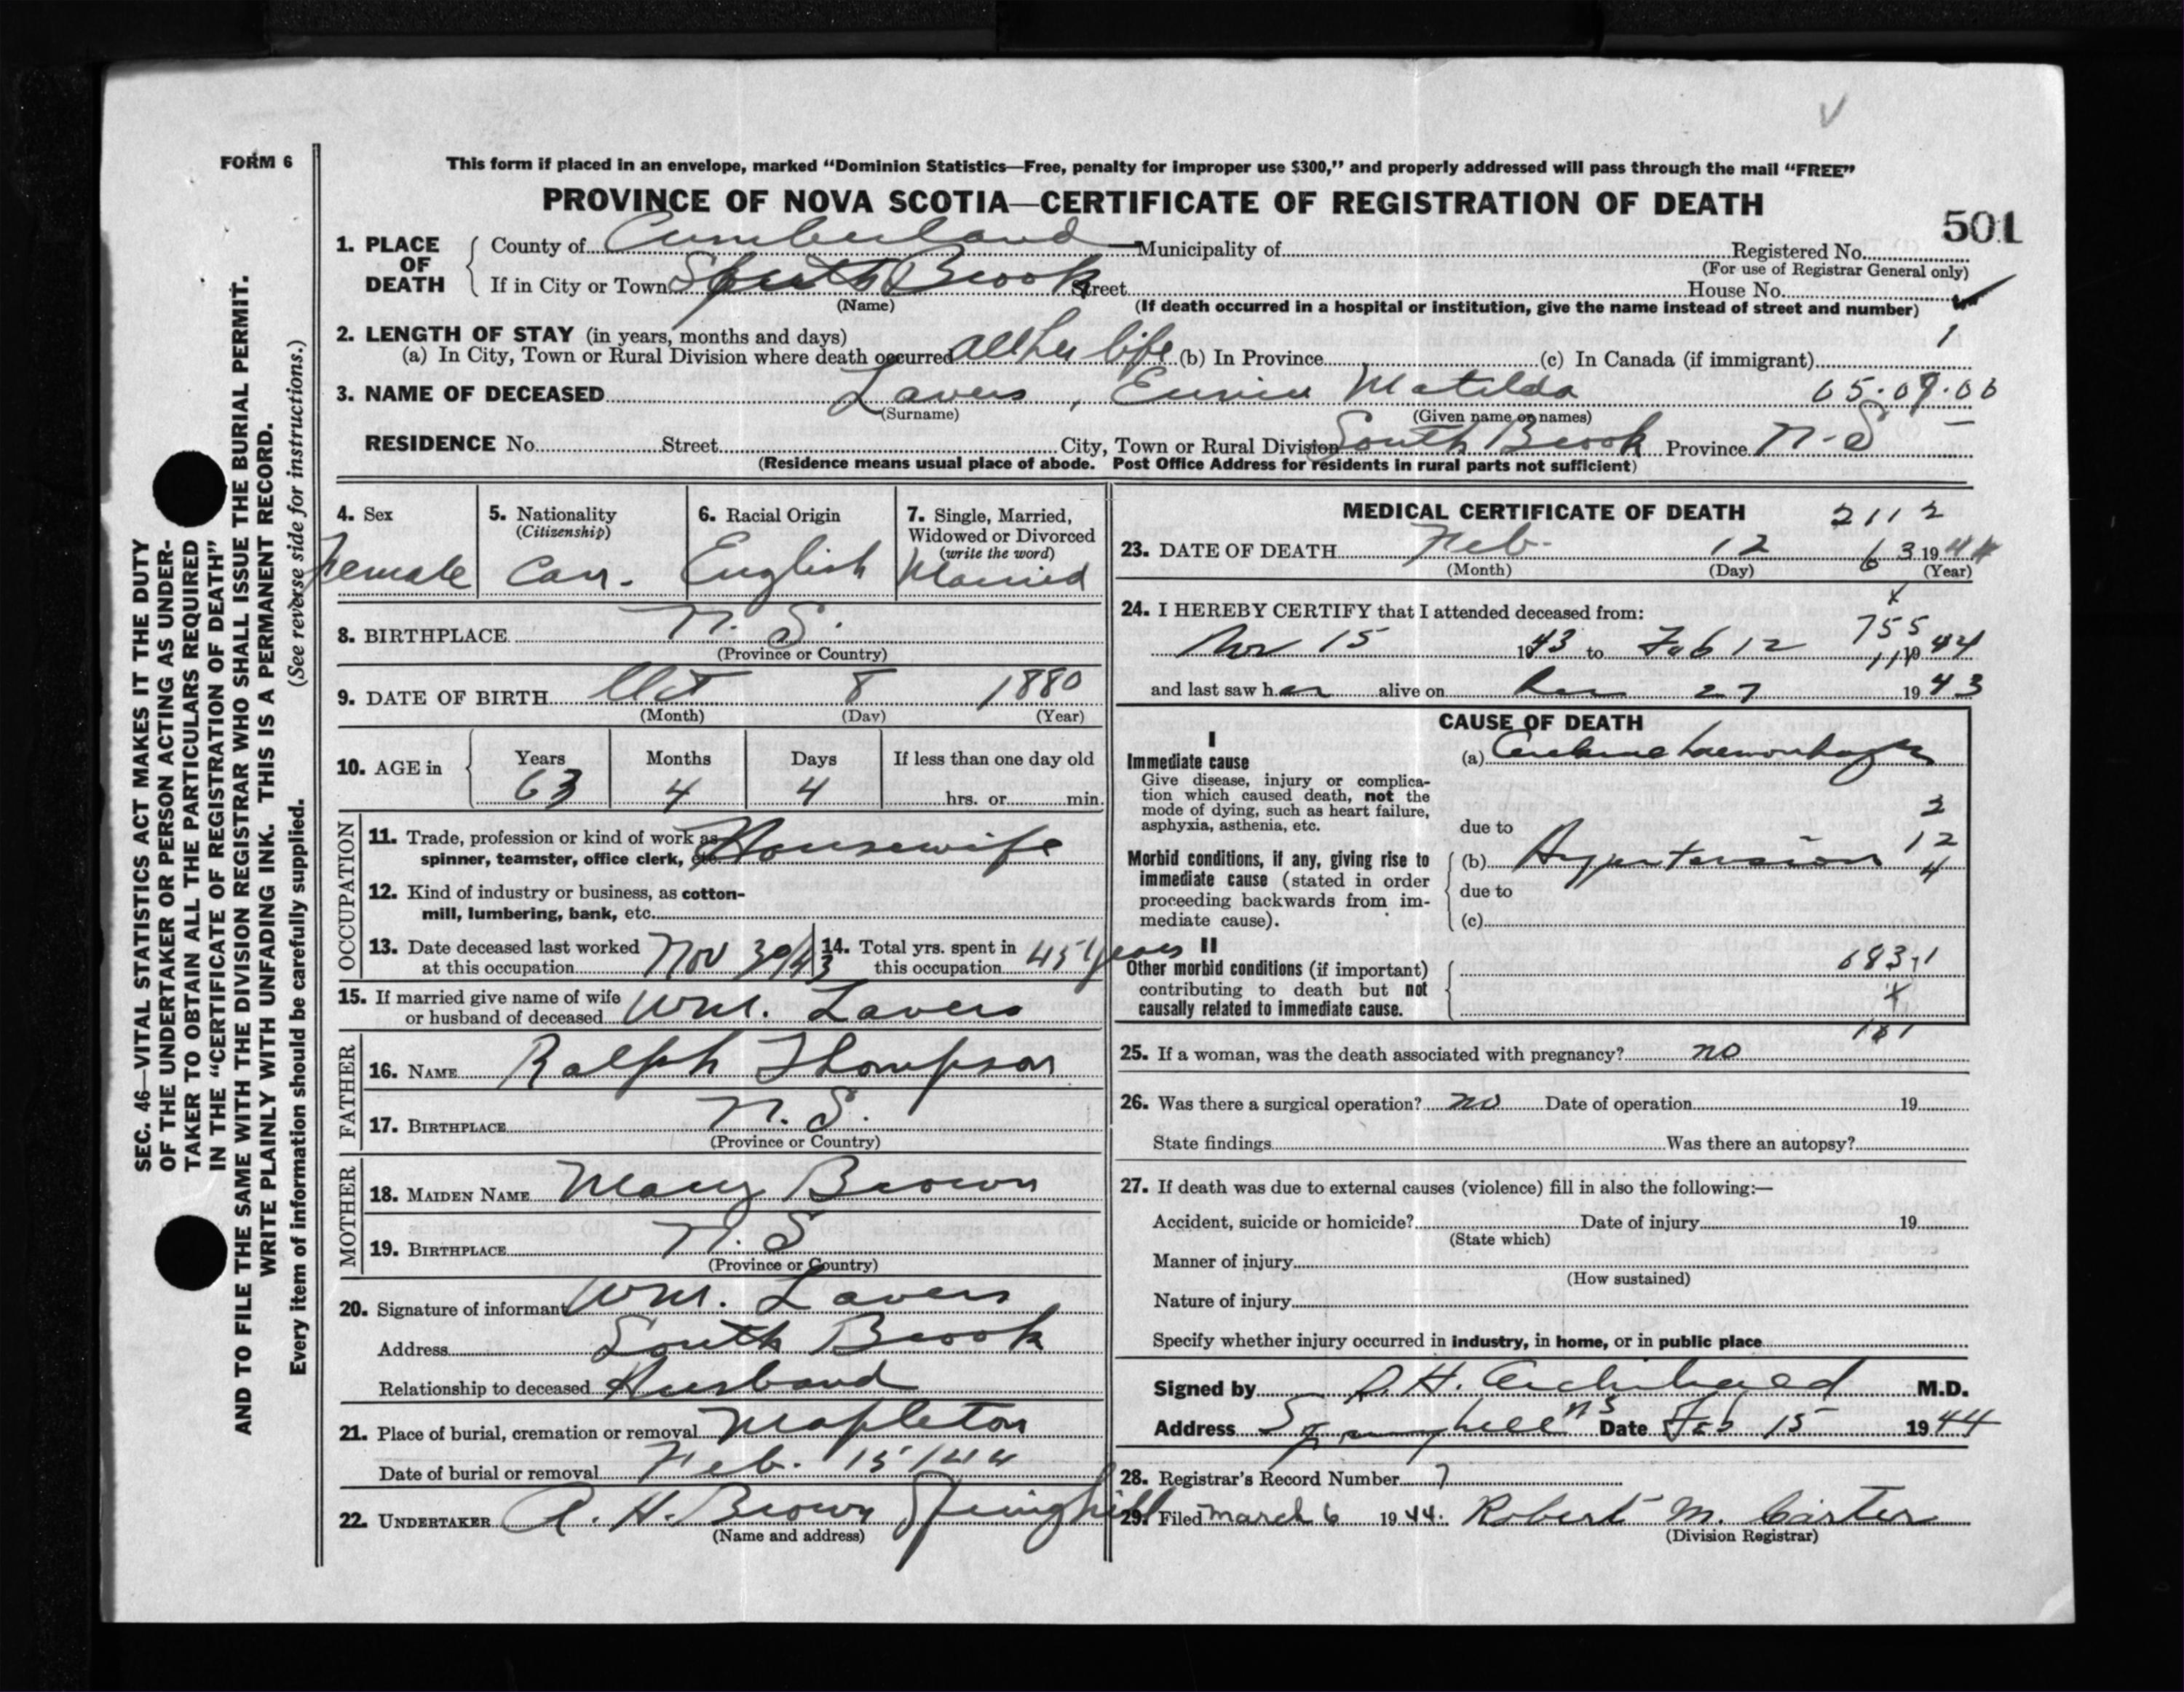 FORM 6
This form if placed in an envelope, marked “Dominion Statistics—Free, penalty for improper use $300,” and properly addressed will pass through the mail “FREE”
PROVINCE OF NOVA SCOTIA—CERTIFICATE OF REGISTRATION OF DEATH
501
1. PLACE OF DEATH County of Cumberland Municipality of Registered No.
(For use of Registrar General only)
If in City or Town South Brook Street House No.
(Name) (If death occurred in a hospital or institution, give the name instead of street and number)
2. LENGTH OF STAY (in years, months and days) 1
(a) In City, Town or Rural Division where death occurred all her life (b) In Province (c) In Canada (if immigrant)
3. NAME OF DECEASED Lavers, Eunice Matilda 05.09.00
(Surname) (Given name or names)
RESIDENCE No. Street City, Town or Rural Division South Brook Province N-S
(Residence means usual place of abode. Post Office Address for residents in rural parts not sufficient)
4. Sex Female
5. Nationality (Citizenship) Can.
6. Racial Origin English
7. Single, Married, Widowed or Divorced (write the word) Married
8. BIRTHPLACE N. S.
(Province or Country)
9. DATE OF BIRTH Oct 8 1880
(Month) (Day) (Year)
10. AGE in Years 63 Months 4 Days 4 If less than one day old hrs. or min.
OCCUPATION
11. Trade, profession or kind of work as spinner, teamster, office clerk, etc. Housewife
12. Kind of industry or business, as cotton-mill, lumbering, bank, etc.
13. Date deceased last worked at this occupation Nov 30/43
14. Total yrs. spent in this occupation 45 years
15. If married give name of wife or husband of deceased Wm. Lavers
FATHER
16. NAME Ralph Thompson
17. BIRTHPLACE N. S.
(Province or Country)
MOTHER
18. MAIDEN NAME Mary Brown
19. BIRTHPLACE N. S
(Province or Country)
20. Signature of informant Wm. Lavers
Address South Brook
Relationship to deceased Husband
21. Place of burial, cremation or removal Mapleton
Date of burial or removal Feb. 15/44
22. UNDERTAKER A. H. Brown Springhill
(Name and address)
MEDICAL CERTIFICATE OF DEATH 2112
23. DATE OF DEATH Feb. 12 63 1944
(Month) (Day) (Year)
24. I HEREBY CERTIFY that I attended deceased from: x
755
Nov 15 1943 to Feb 12 1944
and last saw her alive on 27 1943
CAUSE OF DEATH
I
Immediate cause
Give disease, injury or complication which caused death, not the mode of dying, such as heart failure, asphyxia, asthenia, etc.
(a) Cerebral haemorrhage
2
due to
12
Morbid conditions, if any, giving rise to immediate cause (stated in order proceeding backwards from immediate cause).
(b) Hypertension
4
due to
(c)
II
Other morbid conditions (if important) contributing to death but not causally related to immediate cause.
683-1
x
25. If a woman, was the death associated with pregnancy? no
26. Was there a surgical operation? no Date of operation 19
State findings Was there an autopsy?
27. If death was due to external causes (violence) fill in also the following:—
Accident, suicide or homicide? Date of injury 19
(State which)
Manner of injury
(How sustained)
Nature of injury
Specify whether injury occurred in industry, in home, or in public place
Signed by H. Archibald M.D.
Address Springhill NS Date Feb 15 1944
28. Registrar's Record Number 7
29. Filed March 6 1944. Robert M. Carter
(Division Registrar)
SEC. 46—VITAL STATISTICS ACT MAKES IT THE DUTY
OF THE UNDERTAKER OR PERSON ACTING AS UNDER-
TAKER TO OBTAIN ALL THE PARTICULARS REQUIRED
IN THE “CERTIFICATE OF REGISTRATION OF DEATH”
AND TO FILE THE SAME WITH THE DIVISION REGISTRAR WHO SHALL ISSUE THE BURIAL PERMIT.
WRITE PLAINLY WITH UNFADING INK. THIS IS A PERMANENT RECORD.
Every item of information should be carefully supplied. (See reverse side for instructions.)